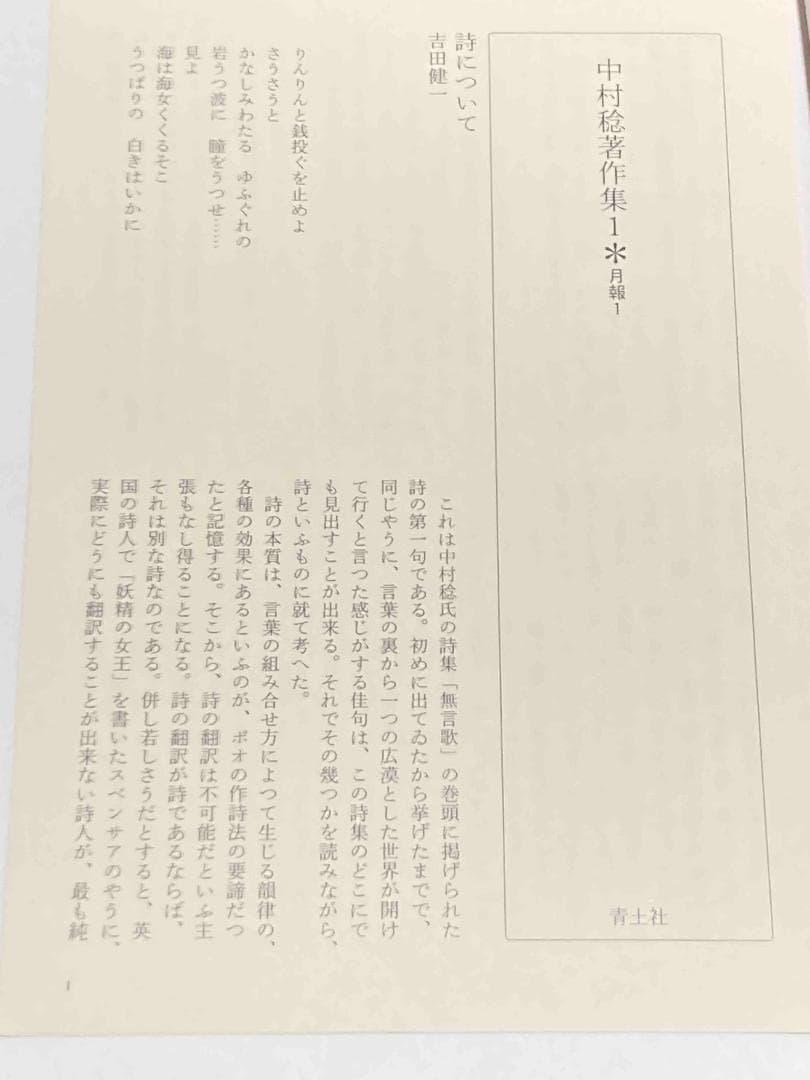 中村稔著作集1＊月報1
青土社
詩について
吉田健一
りんりんと銭投ぐを止めよ
さうさうと
かなしみわたる　ゆふぐれの
岩うつ波に　瞳をうつせ……
見よ
海は海女くくるそこ
うつばりの　白きはいかに
これは中村稔氏の詩集「無言歌」の巻頭に掲げられた
詩の第一句である。初めに出てゐたから挙げたまでで、
同じやうに、言葉の裏から一つの広漠とした世界が開け
て行くと言つた感じがする佳句は、この詩集のどこにで
も見出すことが出来る。それでその幾つかを読みながら、
詩といふものに就て考へた。
詩の本質は、言葉の組み合せ方によつて生じる韻律の、
各種の効果にあるといふのが、ポオの作詩法の要諦だつ
たと記憶する。そこから、詩の翻訳は不可能だといふ主
張もなし得ることになる。詩の翻訳が詩であるならば、
それは別な詩なのである。併し若しさうだとすると、英
国の詩人で「妖精の女王」を書いたスペンサアのやうに、
実際にどうにも翻訳することが出来ない詩人が、最も純
1